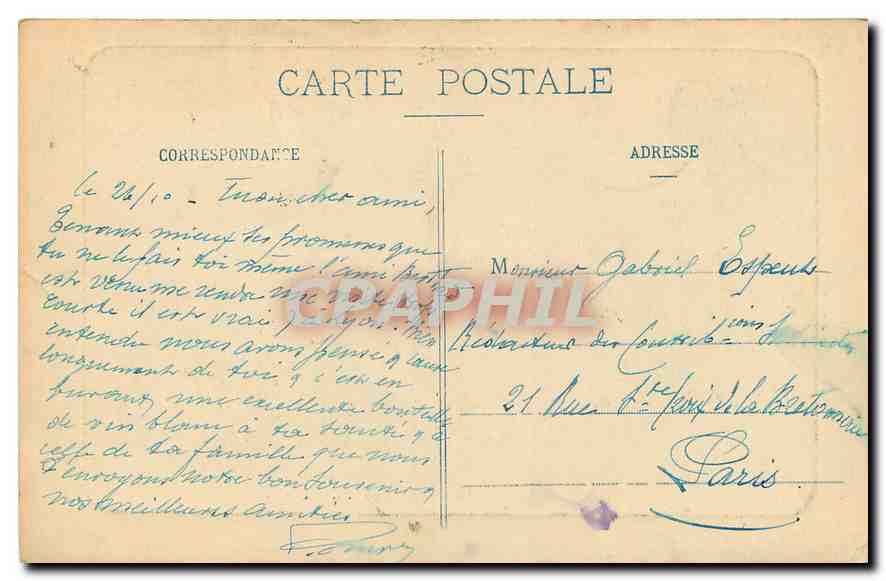 CARTE POSTALE
CORRESPONDANCE
ADRESSE
le 26/10 - Mon cher ami,
Tenant mieux tes promesses que
tu ne le fais toi même l'ami
est venu me rendre une visite
courte il est vrai
entendu nous avons pensé & causé
longuement de toi & c'est en
buvant une excellente bouteille
de vin blanc à ta santé & à
celle de ta famille que nous
t'envoyons notre bon souvenir &
nos meilleures amitiés
Monsieur Gabriel Espeut
Rédacteur des Contrib-ions
21 Rue Ste Croix de la Bretonnerie
Paris
CPAPHIL